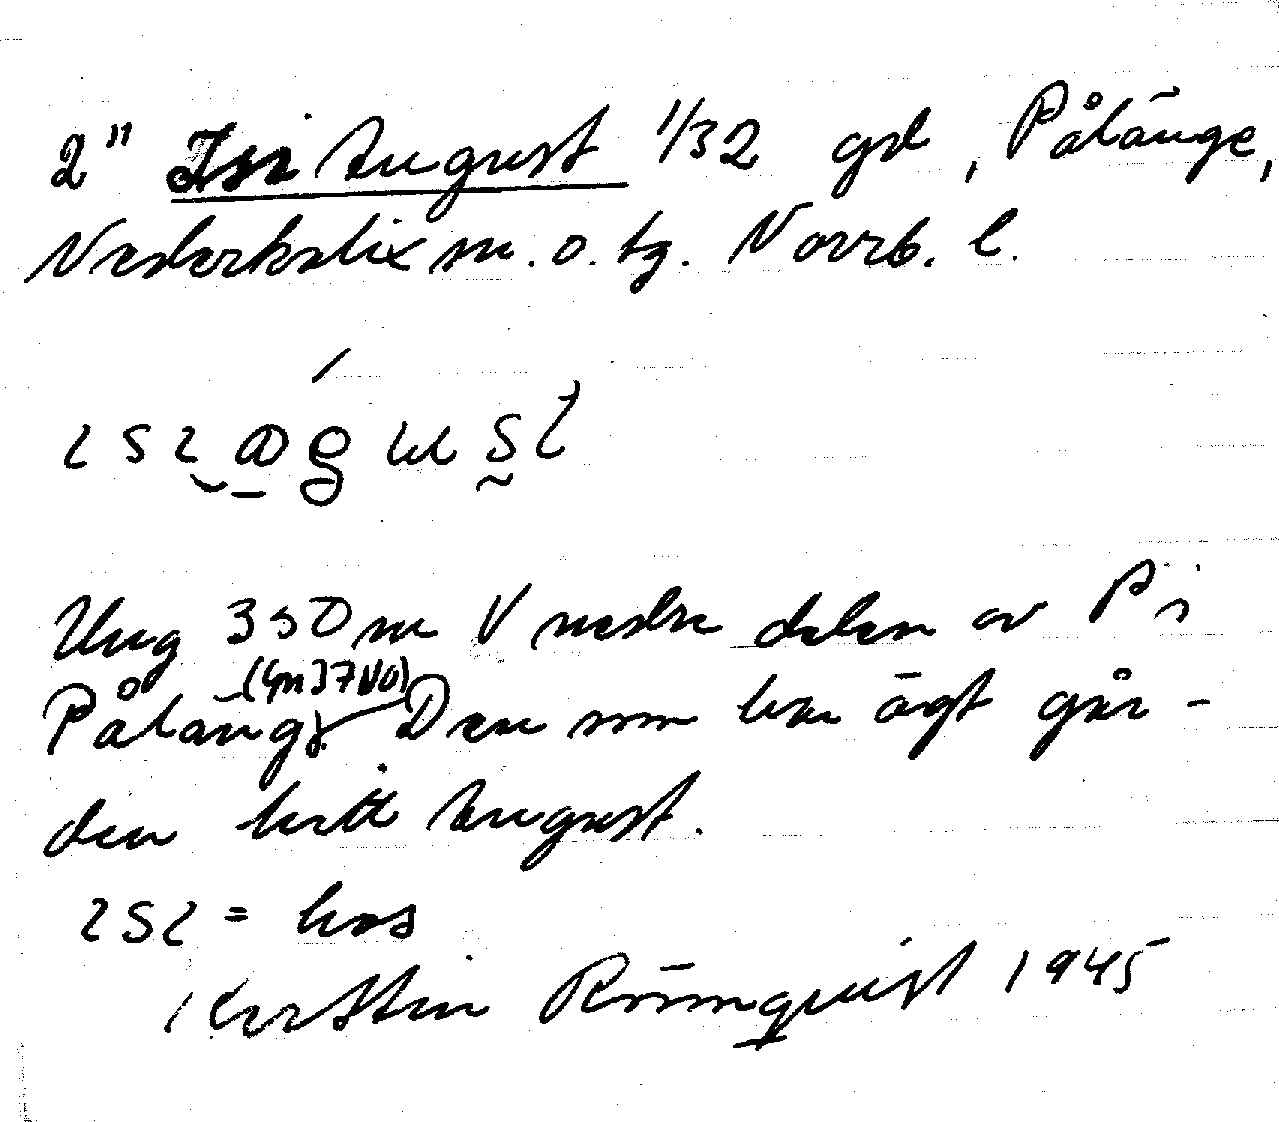 2" Isi August 1/32 gd , Pålänge,
Nederkalix sn. o. tg. Norrb. l.
ISI
Ung 350 m V nedre delen av P i
Pålänge Den som har ägt går-
den hette August.
ISI = hos
Kerstin Rönnquist 1945